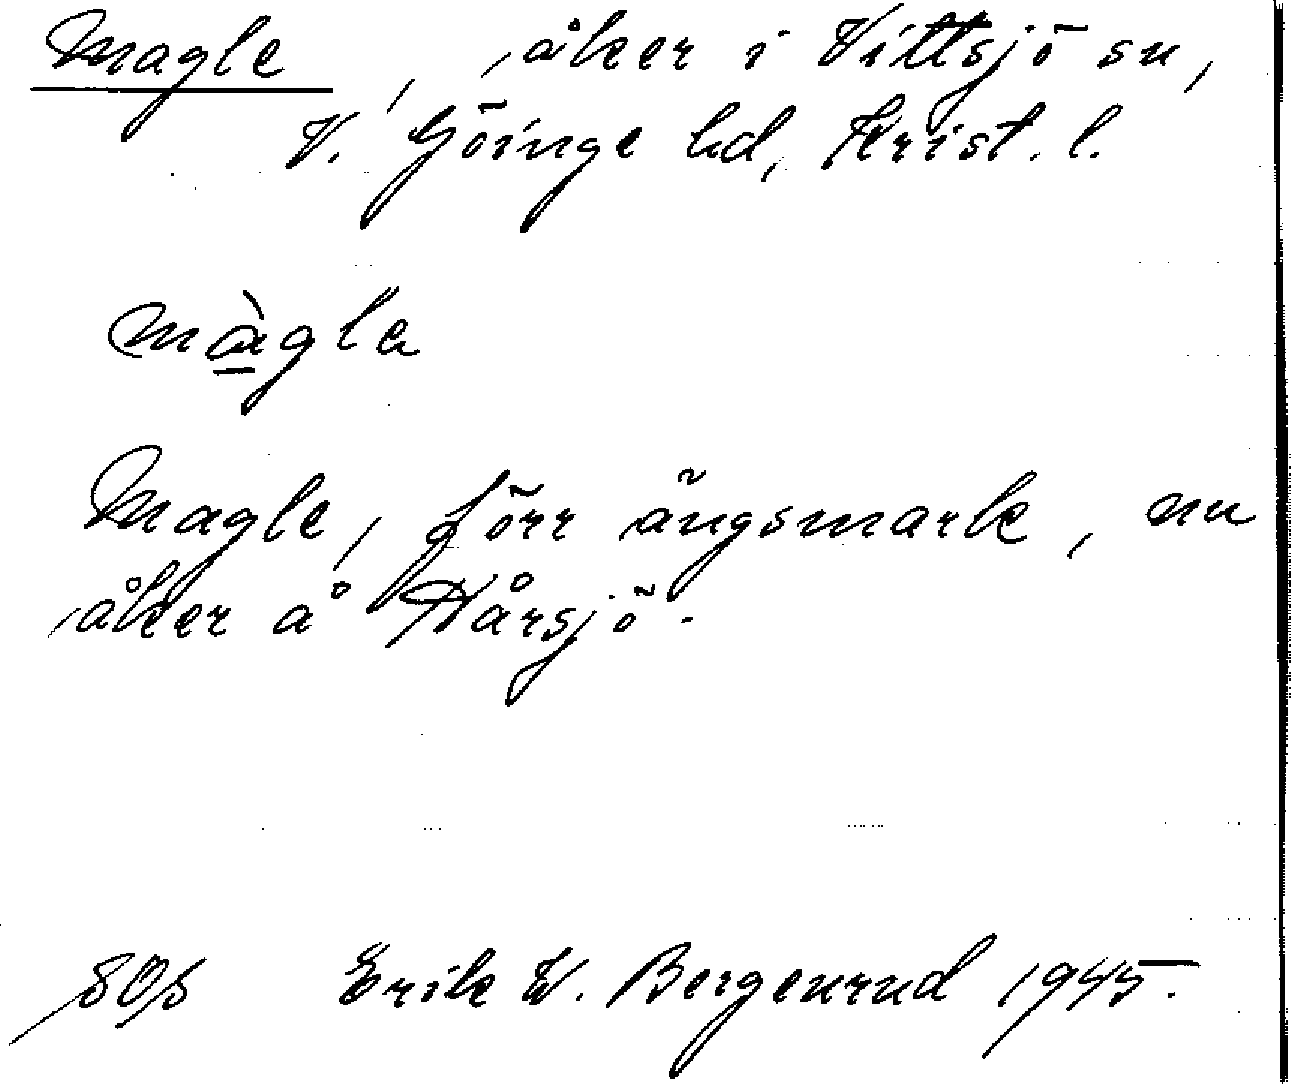 Magle, åker i Vittsjö sn,
V. Göinge hd, Krist. l.
màgla
Magle, förr ängsmark, nu
åker å Hårsjö.
Erik W. Bergenrud 1945.